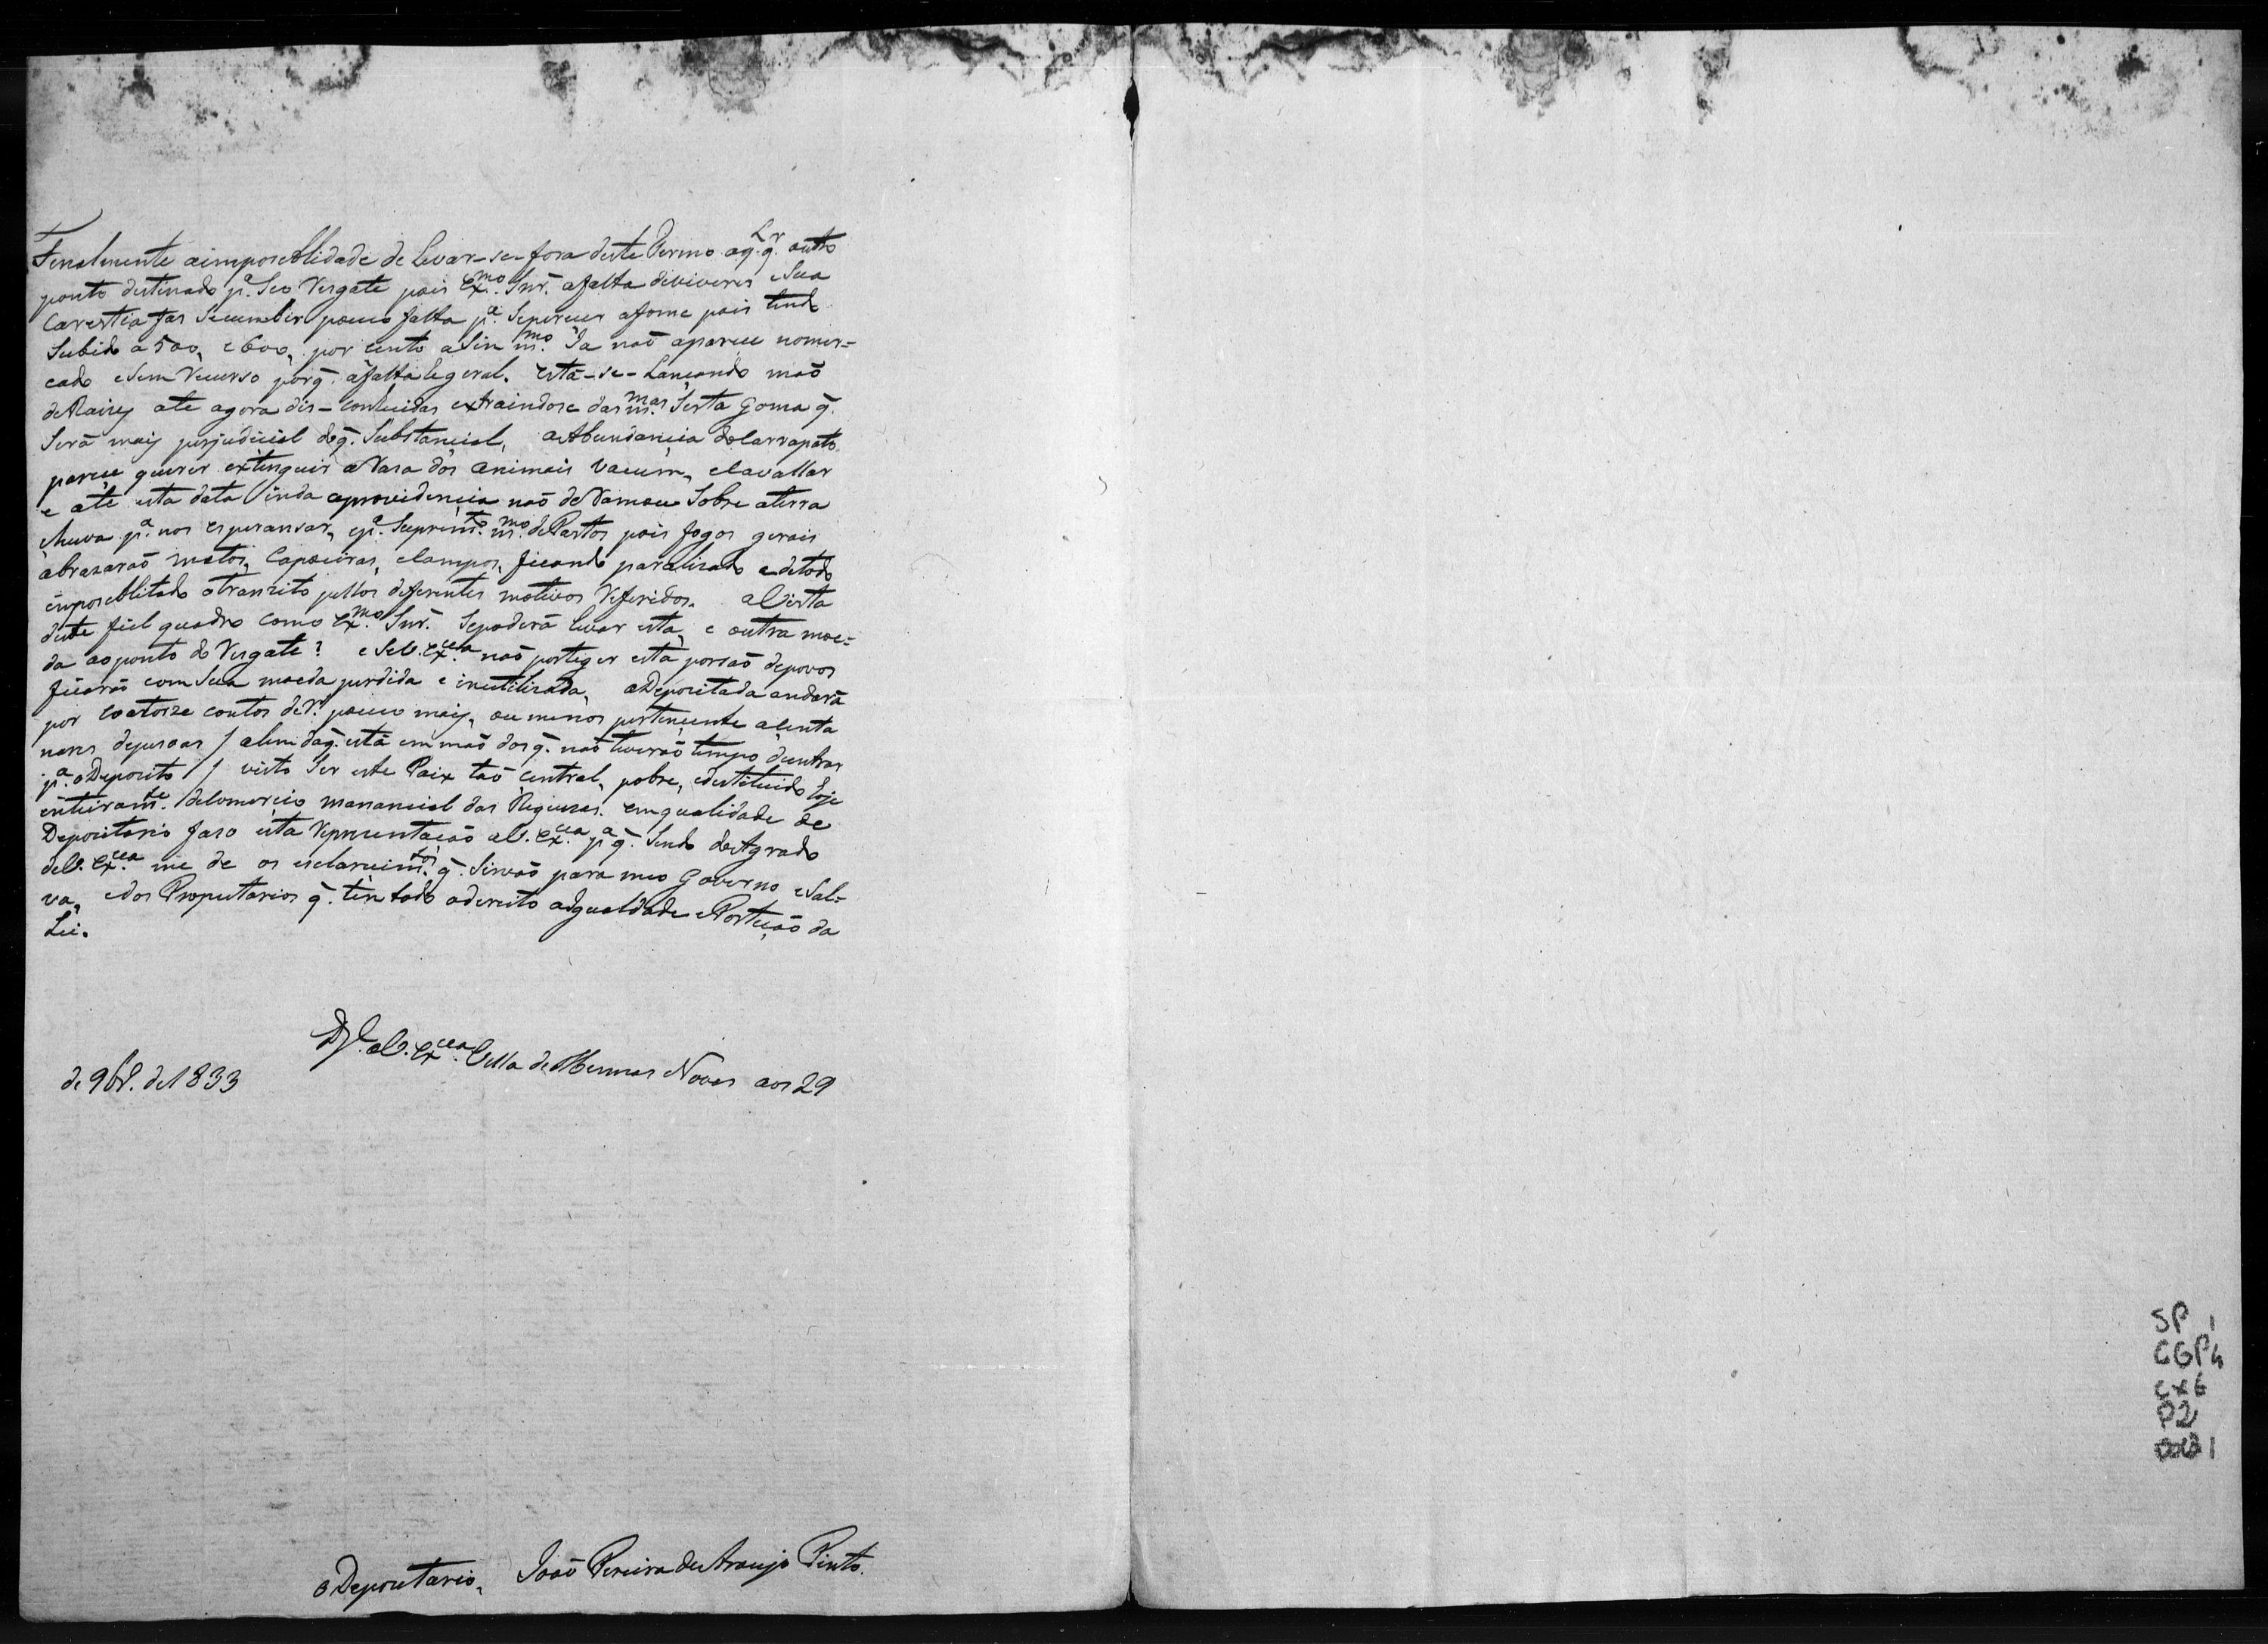 Fenalmente aimposeblidade de Levar-se-fora deste Termo aq.^Lr q. outro
ponto destinado p.ª Seo Resgate pois Ex.mo Snr. afalta deviveres eSua
Carestia fas Sucumbir pouco falta p.ª Seperecer afome pois tend
Subido a 500, e 600, por cento aSin m.mo Ja naõ aparece nomer=
cado eSem Recurso porq̃. afalta hegeral. está-se-Lancando maõ
deRaizes ate agora dis-conhecidas extraindose das m.mas Serta Goma q̃.
Será mais perjudicial doq̃. Substancial, aAbundancia doCarrapato
parece querer extinguir aRasa dos animais Vacum, eCavallar
e ate esta data inda aprovidencia naõ deRamou Sobre aterra
chuva p.ª nos esperansar, ep.ª Suprim.to m.mo dePastos pois fogos gerais
abrazaraõ matos, Capoeiras, eCampos, ficando paralizado e detodo
emposeblitado otranzito pellos deferentes motivos Referidos. aVista
deste fiel quadro como Ex.mo Snr. Sepoderá levar esta, e outra moe=
da aoponto do Resgate? e SeV. Ex.cia naõ porteger esta porsaõ depovos
ficaraõ com Sua moeda perdida e inutilizada, aDepozitada andará
por Coatorze contos deR.s pouco mais, ou menos pertencente acenta
nares depesoas / alem daq̃. está em maõ dos q̃. naõ tiveraõ tempo dentrar
p.ª oDepozito / visto Ser este Paix taõ central, pobre, edestituido hoje
enteiram.te deComercio manancial das Riquezas. em qualidade de
Depozitario faso esta Reprezentaçaõ aV. Ex.cia p.ª q̃. Sendo doAgrado
deV. Ex.cia me de os esclarecim.tos q̃. Sirvaõ para meo Governo eSal=
va, edos Propietarios q̃. tem todo odereito aIgualdade ePorteçaõ da
Lei.
D.s G.e aV. Ex.cia Villa deMinnas Novas aos 29
de 9br.º de 1833
oDepozitario, Joaõ Pereira deAraujo Pinto.
SP 1
CGP4
Cx6
P2
doc31